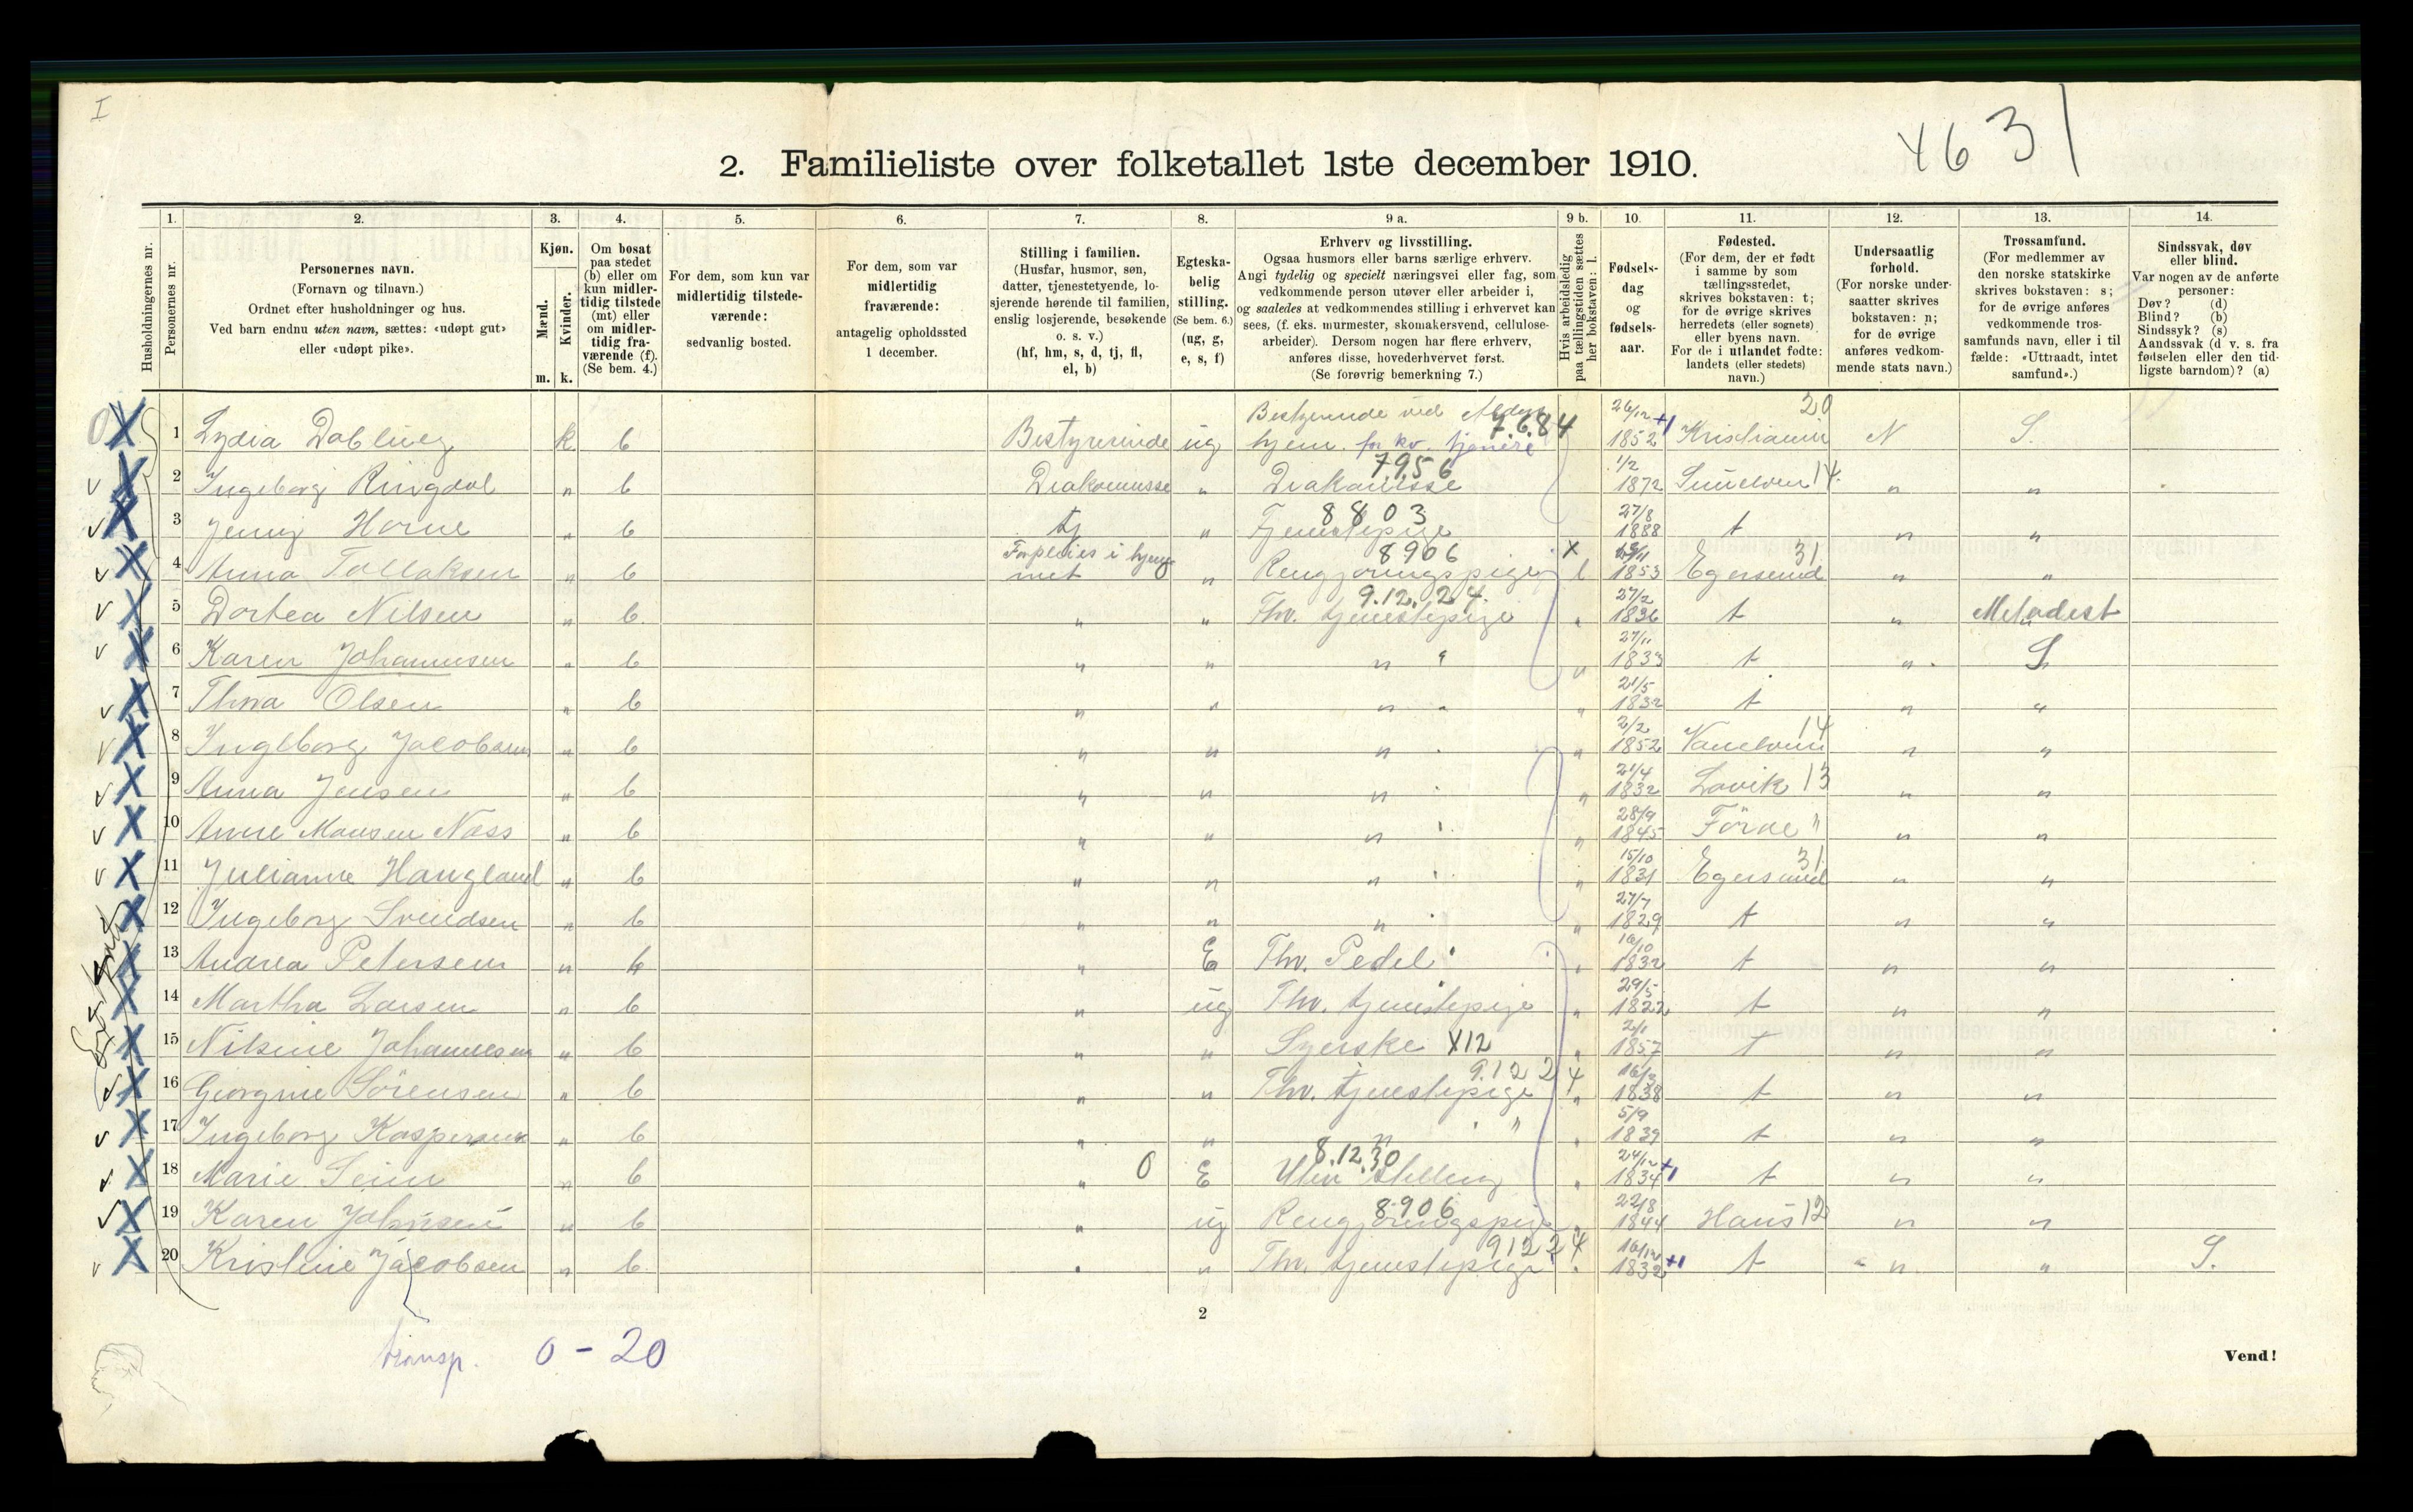 I
4631
2. Familieliste over folketallet 1ste december 1910.
1. 2. 3. 4. 5. 6. 7. 8. 9 a. 9 b. 10. 11. 12. 13. 14.
Husholdningernes nr.
Personernes nr.
Personernes navn.
(Fornavn og tilnavn.)
Ordnet efter husholdninger og hus.
Ved barn endnu uten navn, sættes: «udøpt gut»
eller «udøpt pike».
Kjøn.
Mænd.
Kvinder.
m. k.
Om bosat
paa stedet
(b) eller om
kun midler-
tidig tilstede
(mt) eller
om midler-
tidig fra-
værende (f).
(Se bem. 4.)
For dem, som kun var
midlertidig tilstede-
værende:
sedvanlig bosted.
For dem, som var
midlertidig
fraværende:
antagelig opholdssted
1 december.
Stilling i familien.
(Husfar, husmor, søn,
datter, tjenestetyende, lo-
sjerende hørende til familien,
enslig losjerende, besøkende
o. s. v.)
(hf, hm, s, d, tj, fl,
el, b)
Egteska-
belig
stilling.
(Se bem. 6.)
(ug, g,
e, s, f)
Erhverv og livsstilling.
Ogsaa husmors eller barns særlige erhverv.
Angi tydelig og specielt næringsvei eller fag, som
vedkommende person utøver eller arbeider i,
og saaledes at vedkommendes stilling i erhvervet kan
sees, (f. eks. murmester, skomakersvend, cellulose-
arbeider). Dersom nogen har flere erhverv,
anføres disse, hovederhvervet først.
(Se forøvrig bemerkning 7.)
Hvis arbeidsledig
paa tællingstiden sættes
her bokstaven: l.
Fødsels-
dag
og
fødsels-
aar.
Fødested.
(For dem, der er født
i samme by som
tællingsstedet,
skrives bokstaven: t;
for de øvrige skrives
herredets (eller sognets)
eller byens navn.
For de i utlandet fødte:
landets (eller stedets)
navn.)
Undersaatlig
forhold.
(For norske under-
saatter skrives
bokstaven: n;
for de øvrige
anføres vedkom-
mende stats navn.)
Trossamfund.
(For medlemmer av
den norske statskirke
skrives bokstaven: s;
for de øvrige anføres
vedkommende tros-
samfunds navn, eller i til
fælde: «Uttraadt, intet
samfund».)
Sindssvak, døv
eller blind.
Var nogen av de anførte
personer:
Døv? (d)
Blind? (b)
Sindssyk? (s)
Aandssvak (d v. s. fra
fødselen eller den tid-
ligste barndom)? (a)
Bestyrerinde ved 7.6.84 26/12 20
1 Lydia Dabling k b Bestyrerinde ug hjem for kv. tjenere 1852 +1 Kristiania N S.
7956 1/2
2 Ingeborg Ringdal " b Diakonisse " Diakonisse 1872 14 " "
8803 27/8
3 Jenny Horne " b tj " Tjenestepige 1888 t " "
Forpleies i hjem- 8906 x 31
4 Anna Tollaksen " b met " Rengjøringspige l 1853 Egersund " "
9.12.24. 27/2
5 Dortea Nilsen " b " " Fhv. tjenestepige " 1836 t " Metodist
27/11
6 Karen Johannesen " b " " " " " 1833 t " S
21/5
7 Thora Olsen " b " " " " " 1832 t " "
2/2 14
8 Ingeborg Jacobsen " b " " " " 1852 " "
21/4
9 Anna Jensen " b " " " " 1832 Lavik 13 " "
28/9
10 Anne Monsen Næss " b " " " " 1845 Førde " " "
15/10 31
11 Julianne Haugland " b " " " " 1831 Egersund " "
27/7
12 Ingeborg Svendsen " b " " " " 1829 t " "
16/10
13 Andrea Petersen " b " E Fhv. Pedel " 1832 t " "
29/5
14 Martha Larsen " b " ug Fhv. tjenestepige " 1822 t " "
2/1
15 Nilsine Johannesen " b " " Syerske X12 " 1857 t " "
9.12 24 16/3
16 Georgine Sörensen " b " " Fhv. tjenestepige " 1838 t " "
5/9
17 Ingeborg Kaspersen " b " " " " " 1839 t " "
8.12.30 24/12
18 Marie Seim " b " 0 E Uten stilling " 1834 +1 t " "
8906 22/8
19 Karen Johnsen " b " ug Rengjøringspige " 1844 Haus 12 " "
912 24 16/12
20 Kristine Jacobsen " b " " Fhv. tjenestepige " 1832 +1 t " " S.
2
transp. 0 - 20
Vend!